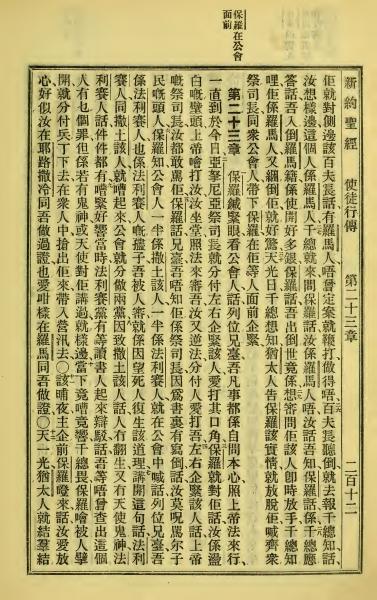 保羅在公會
面前
新約聖經 使徒行傳 第二十三章 二百十二
佢就對側邊該百夫長話有羅馬人唔曾定案就鞭打做得唔百夫長聽倒就去報千總知話
汝想樣邊這個人係羅馬人千總就來問保羅話汝係羅馬人唔汝話吾知保羅話係千總應
答話吾入倒羅馬籍係使開好多銀保羅話吾出倒世竟係想審問佢該人卽時放手千總知
哩佢係羅馬人又綑倒佢就好驚天光日千總想知猶太人告保羅該實情就放脫佢喊齊衆
祭司長同衆公會人帶下保羅在佢等人面前企緊
第二十三章 保羅緘緊眼看公會人話列位兄臺吾凡事都係自問本心照上帝法來行
一直到於今日亞拏尼亞祭司長就分付左右企緊該人愛打其口角保羅就對佢話汝係盪
白嘅壁頭上帝噲打汝汝坐堂照法來審吾汝又逆法分付人愛打吾左右企緊該人話上帝
嘅祭司長汝都敢罵佢保羅話兄臺吾唔知佢係祭司長因爲書裏有寫倒話汝莫呪罵尔子
民嘅頭人保羅知公會人一半係撒土該人一半係法利賽人就在公會中喊話列位兄臺吾
係法利賽人也係法利賽人嘅孻子吾被人審就係因望死人復生該道理講開這句話法利
賽人同撒土該人就嘈起來公會就分做兩黨因致撒土該人話人冇翻生又冇天使鬼神法
利賽人話件件都有嘈緊好響當時法利賽黨有等讀書人起來辯駁話吾等唔曾查出這個
人有乜個罪但係若有鬼神或天使對佢講過就樣邊當下竟嘈竟響千總畏保羅噲被人擘
開就分付兵丁下去在衆人中搶出佢來帶入營汛去○該晡夜主企前保羅來話汝愛放
心好似汝在耶路撒冷同吾做過證也愛咁樣在羅馬同吾做證○天一光猶太人就結羣結